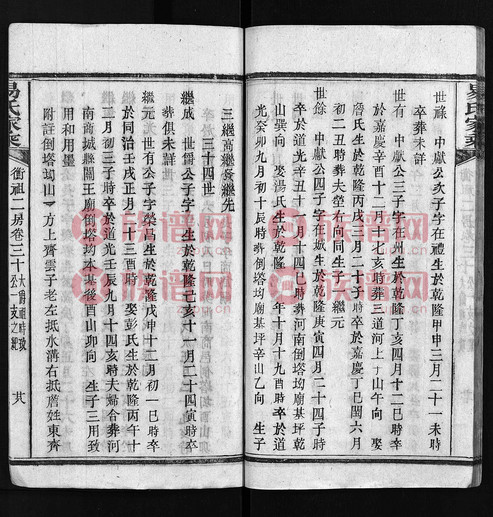 世祿 中獻公次子字在禮生於乾隆甲申三月二十一未時
卒葬未詳
世有 中獻公三子字在州生於乾隆丁亥四月十二巳時卒
於嘉慶辛酉十二月十七亥時葬三道河上丁山午向 娶
詹氏生於乾隆丙戌三月二十子時卒於嘉慶丁巳閏六月
初二丑時葬夫塋右向同生子 繼元
世存 中獻公四子字在城生於乾隆庚寅四月二十四子時
卒於 十五年 十月十四巳時葬河南倒塔坳廟基坪乾
山巽向 娶湯氏生於乾隆 年十月十九酉時卒於道
光癸卯九月初十辰時葬倒塔坳廟基坪辛山乙向 生子
三繼高繼長繼先
三十四世
繼成 世爵公子字 生於乾隆己亥十一月二十四寅時卒
葬俱未詳
繼元 世有公子字榮昌生於乾隆戊申十二月初一巳時卒
於同治壬戌正月十三酉時 娶彭氏生於乾隆丙午十
二月初三子時卒於道光壬辰九月十四亥時夫婦合葬河
南商城縣關王廟倒塔坳本基後酉山卯向 生子三用致
用和用墨
附註倒塔坳山 方上齊雲子老左抵水溝右抵詹姓東齊
易氏家乘
衡祖二房卷三十
大爵祖時政公一支之總
廿八
易氏家乘
族譜網